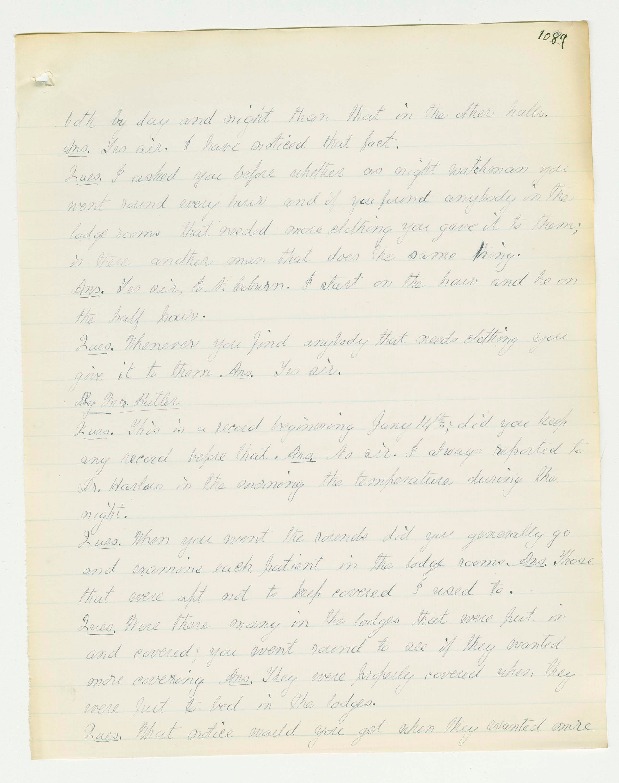 1089
both by day and night than that in the other halls.
Ans. Yes sir. I have noticed that fact.
Ques. I asked you before whether as night watchman you
went round every hour and if you found anybody in the
lodge rooms that needed more clothing you gave it to them;
is there another man that does the same thing.
Ans. Yes sir, I start on the hour and he on
the half hour.
Ques. Whenever you find anybody that needs clothing you
give it to them Ans. Yes sir.
By
Ques. This is a record beginning Jany 14th; did you keep
any record before that. Ans. No sir. I always reported to
Dr. Harlan in the morning the temperature during the
night.
Ques. When you went the rounds did you generally go
and examine each patient in the lodge rooms. Ans. Those
that were apt not to keep covered I used to.
Ques. Were there many in the lodges that were put in
and covered; you went round to see if they wanted
more covering Ans. They were properly covered when they
were put to bed in the lodges.
Ques. What notice would you get when they wanted more